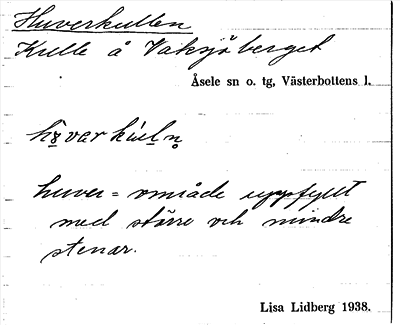 Huverkullen
Kulle å Vaksjöberget
Åsele sn o. tg, Västerbottens l.
huver = område uppfyllt
med större och mindre
stenar.
Lisa Lidberg 1938.